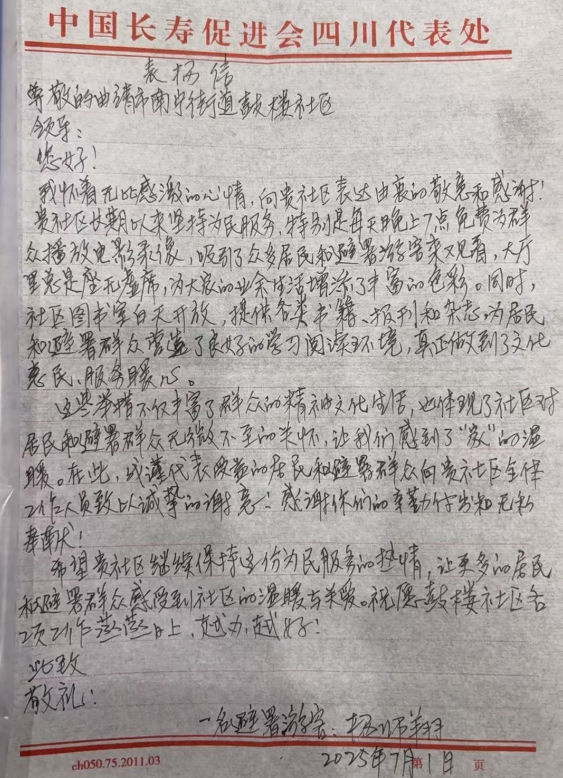 中国长寿促进会四川代表处
表扬信
尊敬的曲靖市南宁街道鼓楼社区
领导:
您好!
我怀着无比感激的心情,向贵社区表达由衷的敬意和感谢!
贵社区长期以来坚持为民服务,特别是每天晚上7点免费为群
众播放电影录像,吸引了众多居民和避暑游客来观看,大厅
里总是座无虚席,为大家的业余生活增添了丰富的色彩。同时,
社区图书室白天开放,提供各类书籍、报刊和杂志,为居民
和避暑群众营造了良好的学习阅读环境,真正做到了文化
惠民、服务暖心。
这些举措不仅丰富了群众的精神文化生活,也体现了社区对
居民和避暑群众无微不至的关怀,让我们感到了“家”的温
暖。在此,我谨代表受益的居民和避暑群众向贵社区全体
工作人员致以诚挚的谢意!感谢你们的辛勤付出和无私
奉献!
希望贵社区继续保持这份为民服务的热情,让更多的居民
和避暑群众感受到社区的温暖与关爱。祝愿鼓楼社区各
项工作蒸蒸日上,越办越好!
此致
敬礼!
一名避暑游客:
2025年7月1日
第 页
ch050.75.2011.03